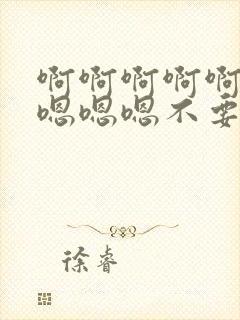 啊啊啊啊啊
嗯嗯嗯不要
徐睿